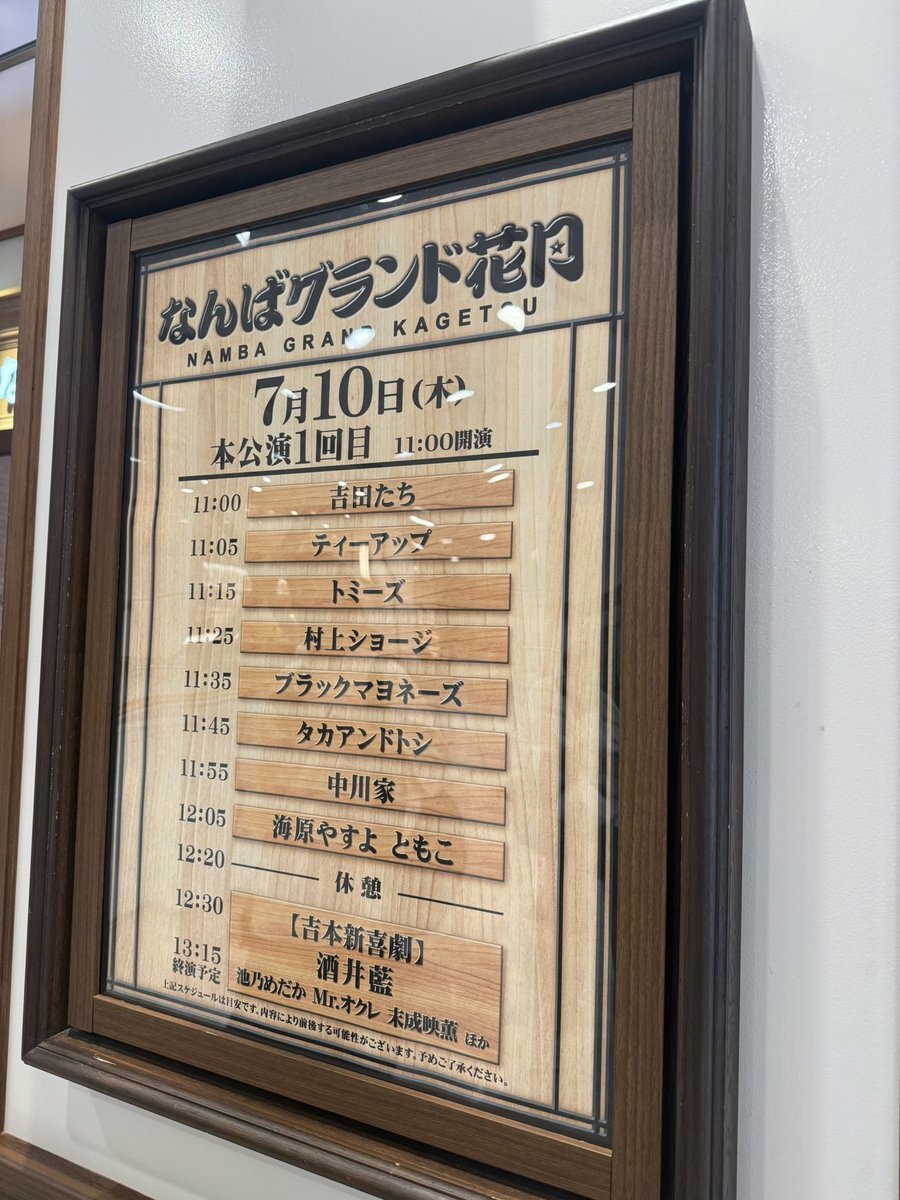 なんばグランド花月
NAMBA GRAND KAGETSU
7月10日(木)
本公演1回目 11:00開演
11:00 吉田たち
11:05 ティーアップ
11:15 トミーズ
11:25 村上ショージ
11:35 ブラックマヨネーズ
11:45 タカアンドトシ
11:55 中川家
12:05 海原やすよ ともこ
12:20 休憩
12:30 【吉本新喜劇】
酒井藍
池乃めだか Mr.オクレ 末成映薫 ほか
13:15
終演予定
上記スケジュールは目安です。内容により前後する可能性がございます。予めご了承ください。